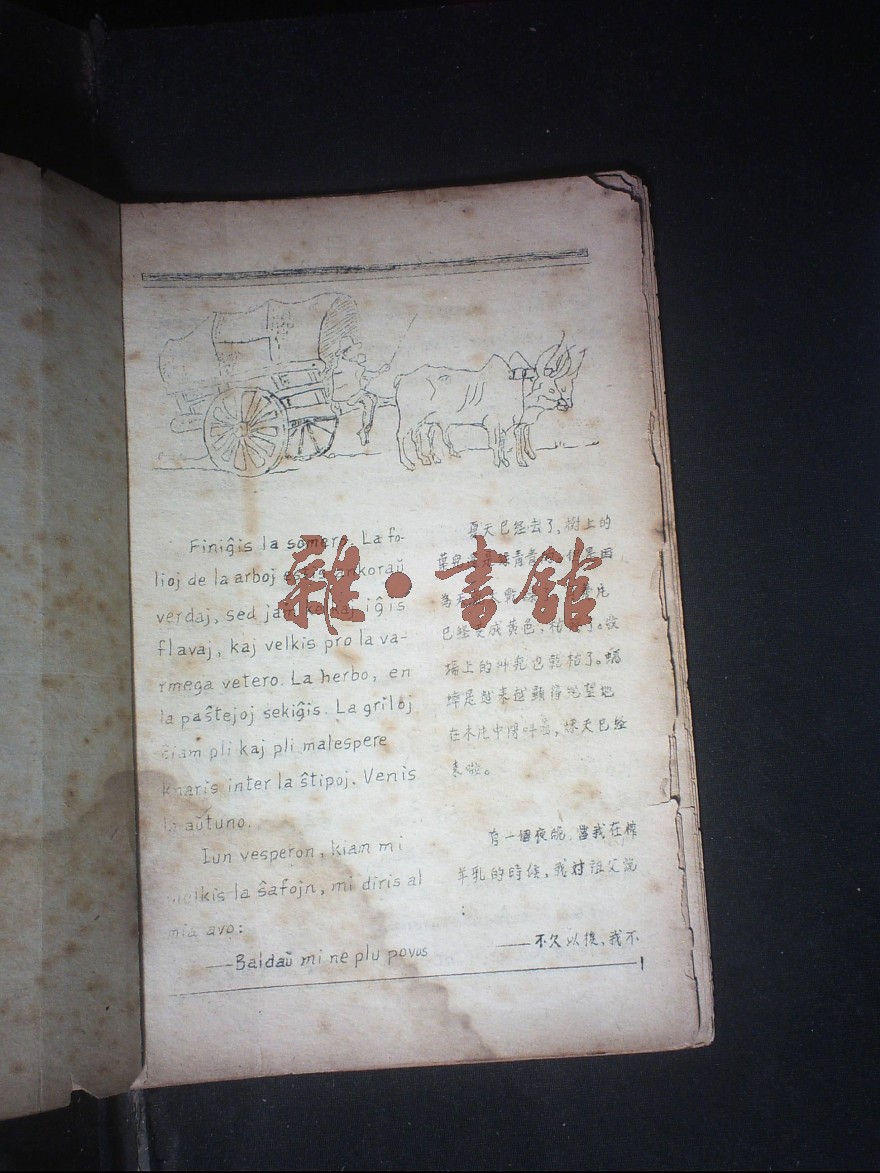 Finiĝis la somero. La fo-
lioj de la arboj estis ankoraŭ
verdaj, sed jam kelkaj iĝis
flavaj, kaj velkis pro la va-
rmega vetero. La herbo, en
la paŝtejoj sekiĝis. La griloj
ĉiam pli kaj pli malespere
knaris inter la ŝtipoj. Venis
la aŭtuno.
Iun vesperon, kiam mi
melkis la ŝafojn, mi diris al
mia avo:
—Baldaŭ mi ne plu povos
夏天已經去了，樹上的
葉兒還是綠青青的，但是因
為天
已經變成黃色，枯 了。牧
場上的 也乾枯了。蟋
蟀是越來越顯得絕望地
在木 中間叫着，
來啦。
有一個夜晚，當我在榨
羊乳的時候，我対祖父説
：
——不久以後，我不
1
雜·書館